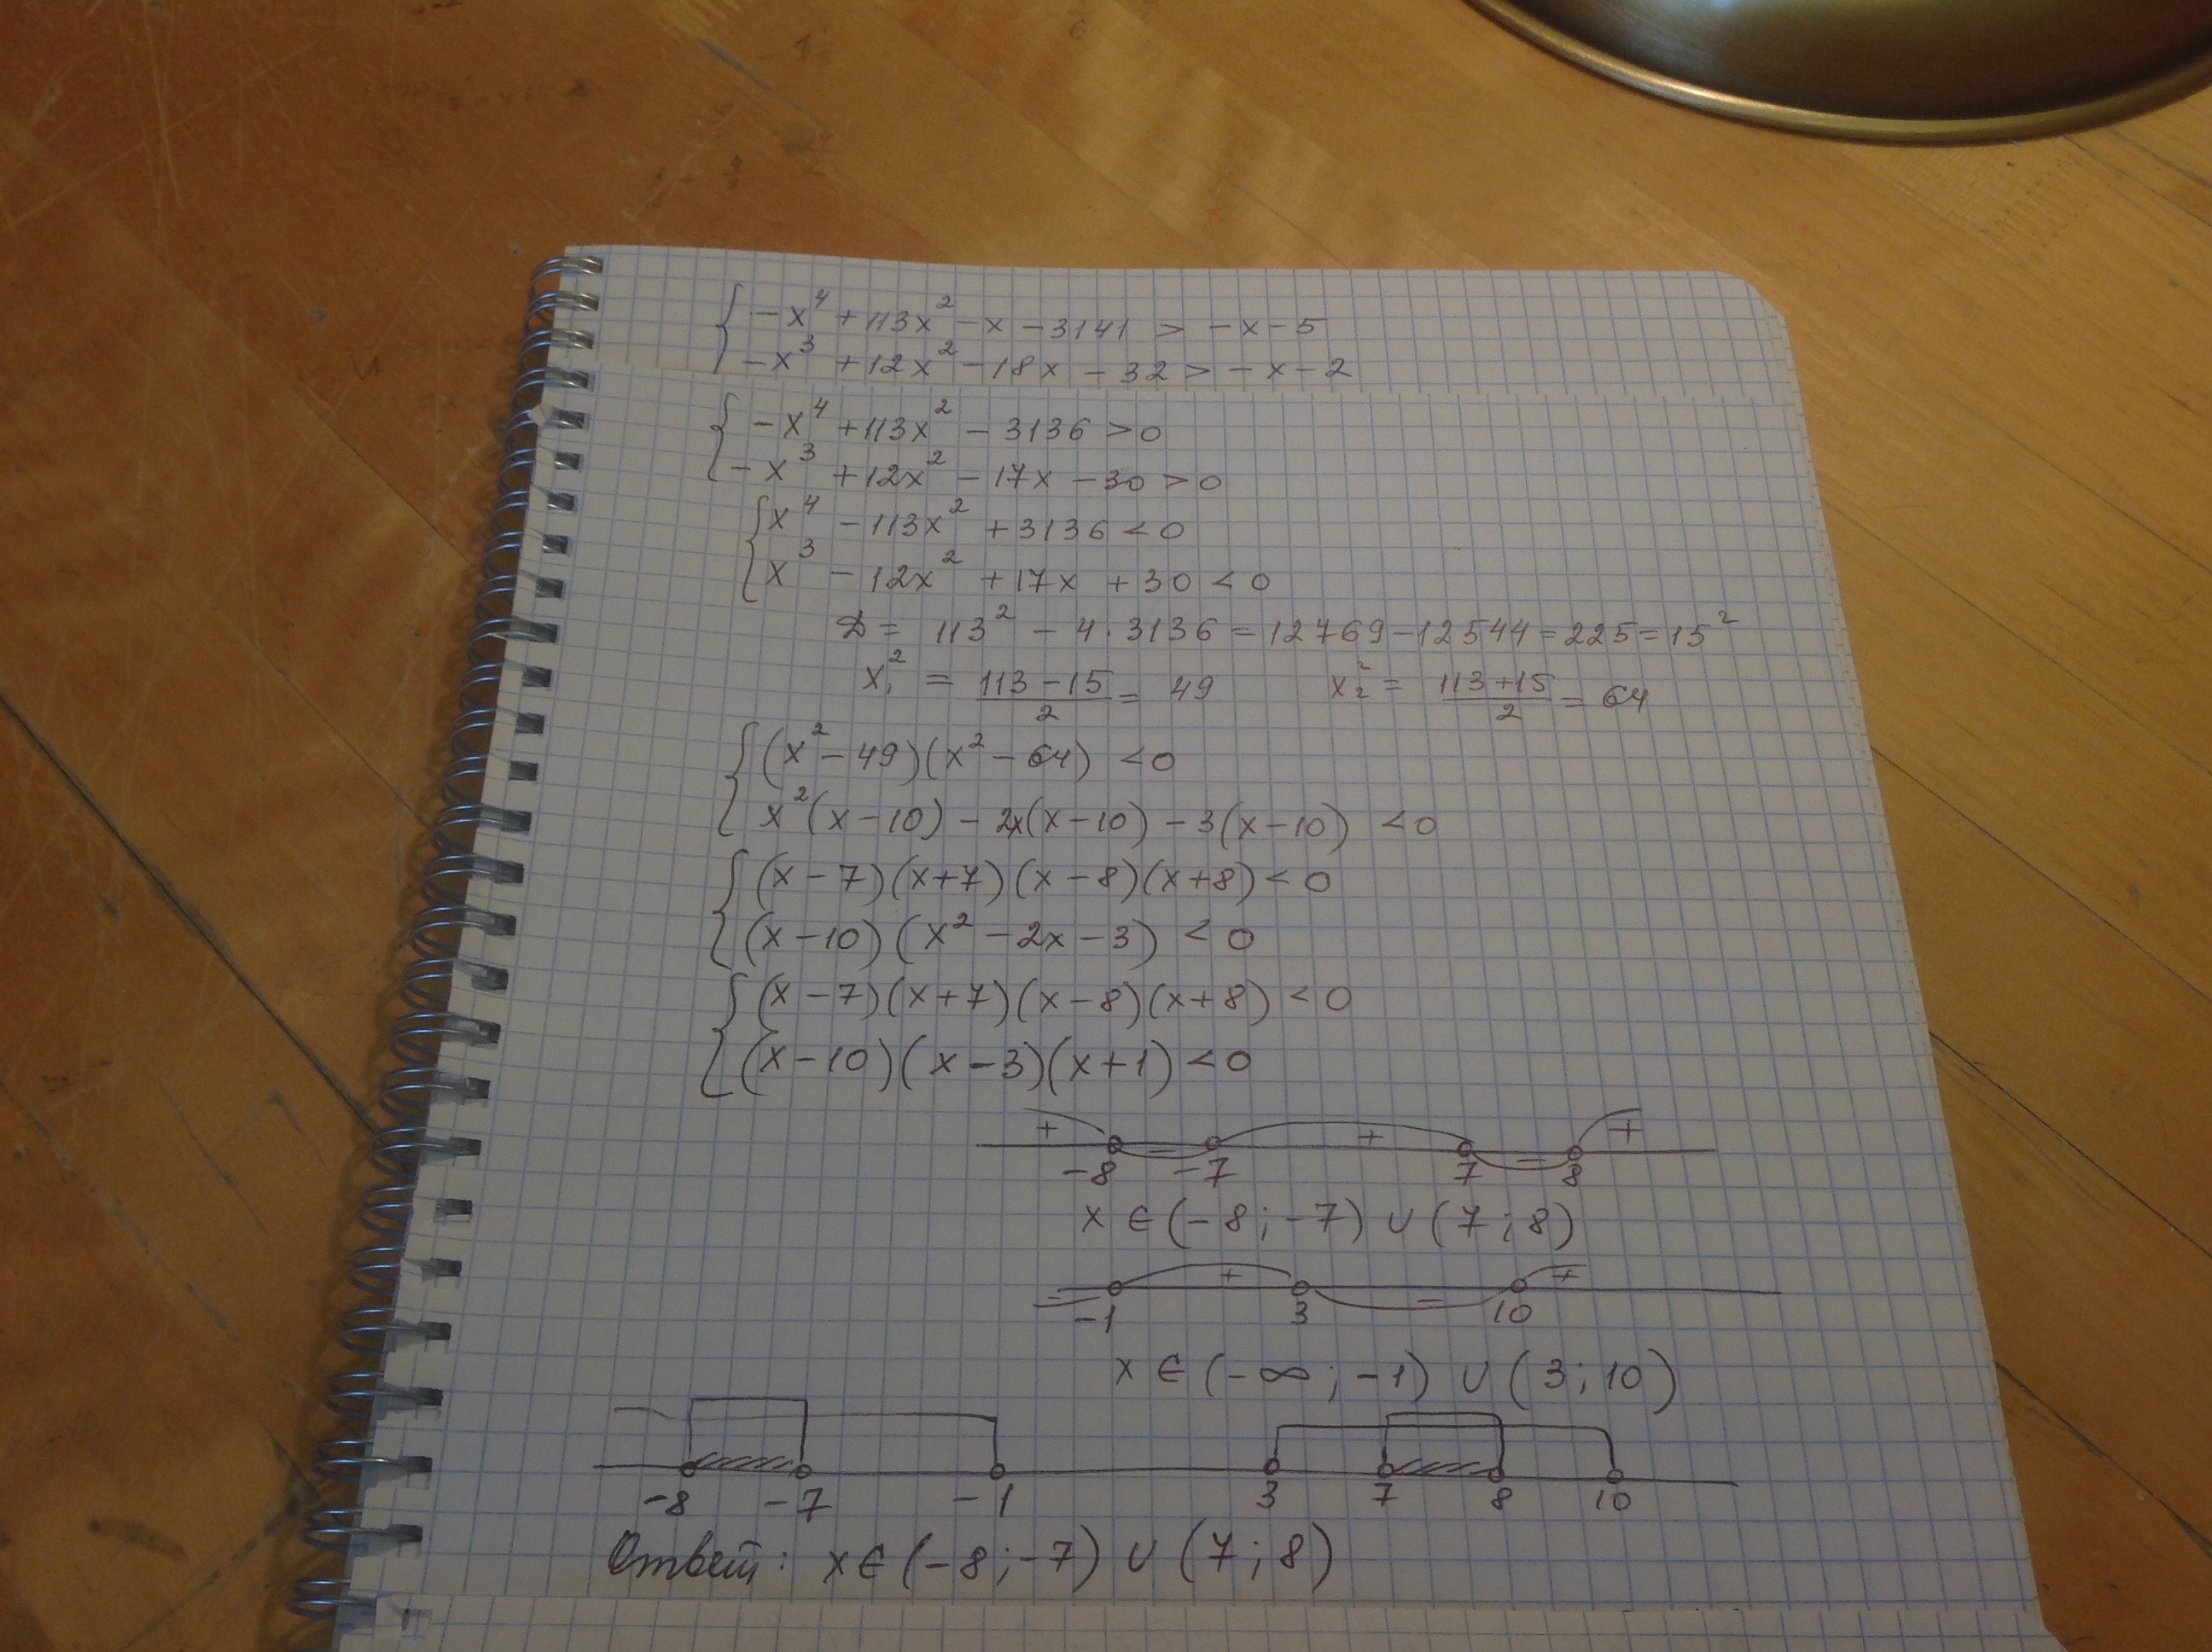 { -x⁴ + 113x² - x - 3141 > -x - 5
-x³ + 12x² - 18x - 32 > -x - 2
{ -x⁴ + 113x² - 3136 > 0
-x³ + 12x² - 17x - 30 > 0
{ x⁴ - 113x² + 3136 < 0
x³ - 12x² + 17x + 30 < 0
D = 113² - 4 · 3136 = 12769 - 12544 = 225 = 15²
x₁² = (113 - 15)/2 = 49 x₂² = (113 + 15)/2 = 64
{ (x² - 49)(x² - 64) < 0
x²(x - 10) - 2x(x - 10) - 3(x - 10) < 0
{ (x - 7)(x + 7)(x - 8)(x + 8) < 0
(x - 10)(x² - 2x - 3) < 0
{ (x - 7)(x + 7)(x - 8)(x + 8) < 0
(x - 10)(x - 3)(x + 1) < 0
+ - + - +
-8 -7 7 8
x ∈ (-8; -7) ∪ (7; 8)
- + - +
-1 3 10
x ∈ (-∞; -1) ∪ (3; 10)
-8 -7 -1 3 7 8 10
Ответ: x ∈ (-8; -7) ∪ (7; 8)